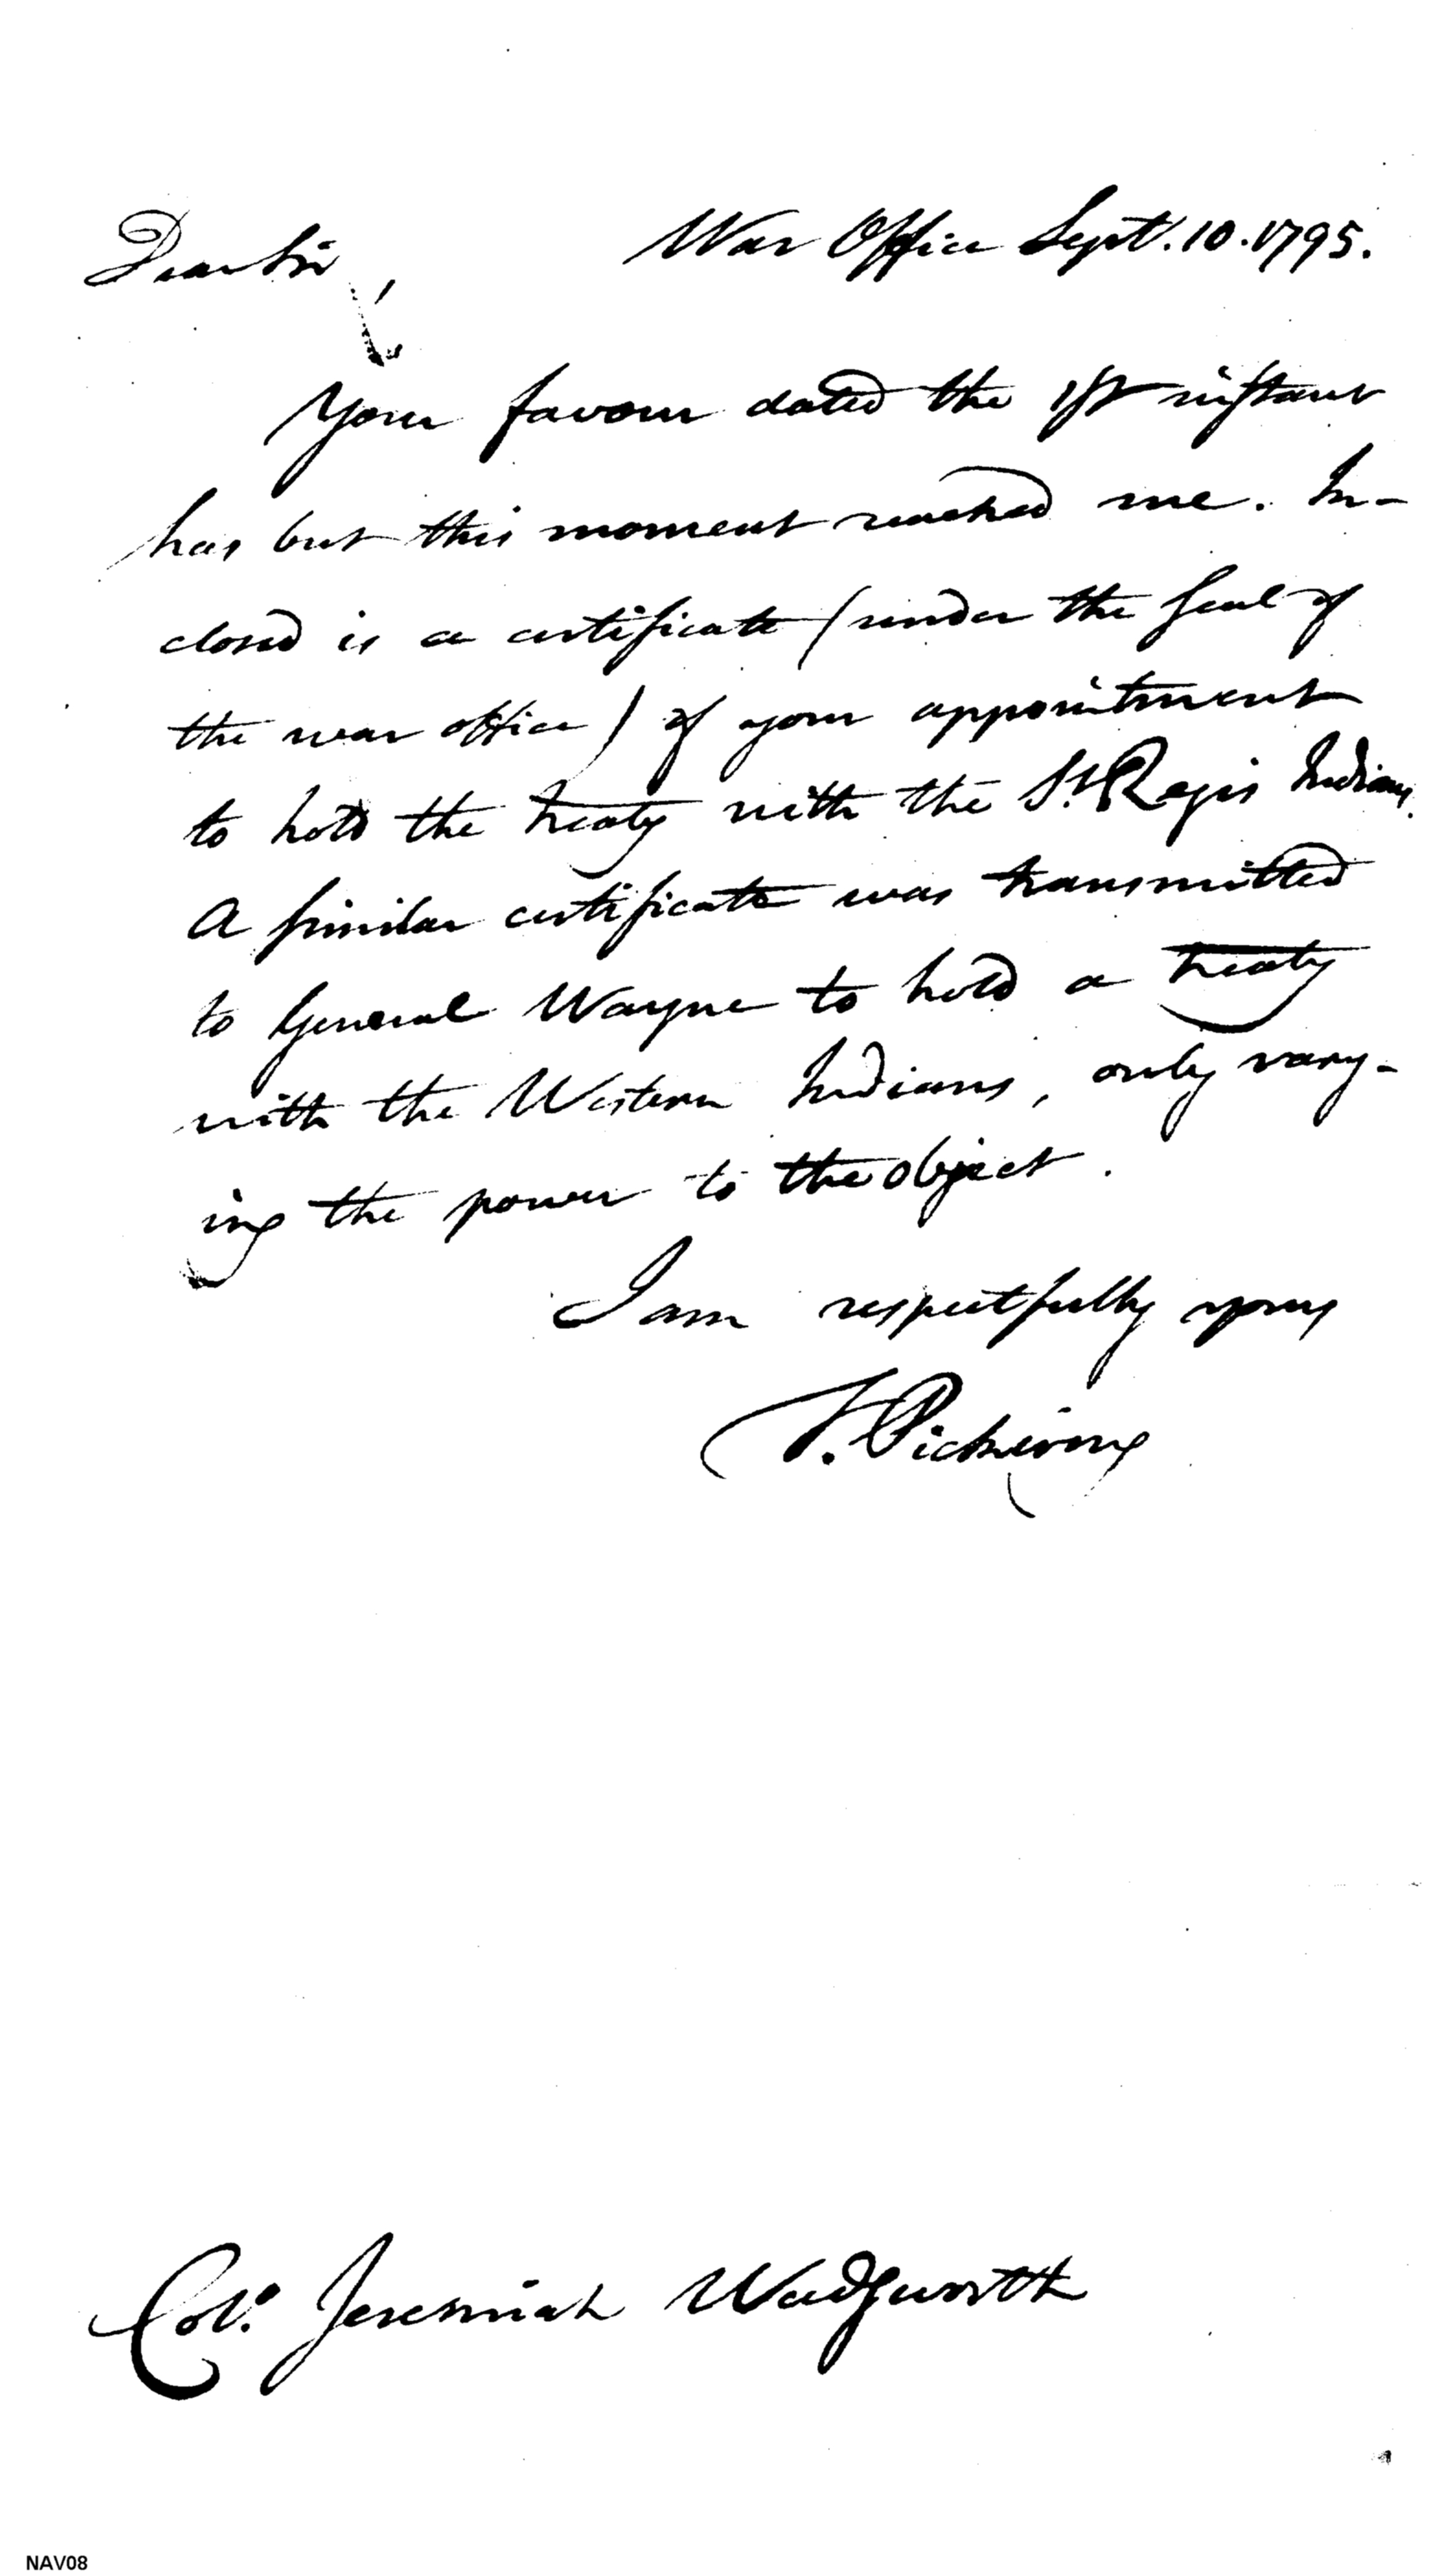 War Office Sept. 10. 1795.
Dear Sir,
Your favour dated the 1st instant
has but this moment reached me. In-
closed is a certificate (under the seal of
the war office) of your appointment
to hold the treaty with the St. Regis Indians.
A similar certificate was transmitted
to General Wayne to hold a treaty
with the Western Indians, only vary-
ing the power to the object.
I am respectfully yours
T. Pickering
Colo. Jeremiah Wadsworth
NAV08